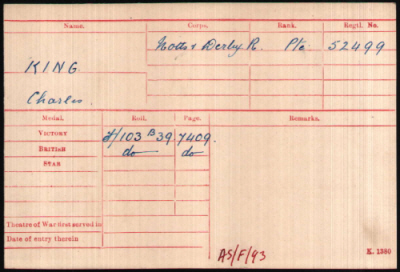 Name. Corps. Rank. Regtl. No.
Notts & Derby R. Pte 52499
KING
Charles.
Medal. Roll. Page. Remarks.
VICTORY H/103 B39 7409.
BRITISH do do
STAR
Theatre of War first served in
Date of entry therein
AS/F/93
K. 1380